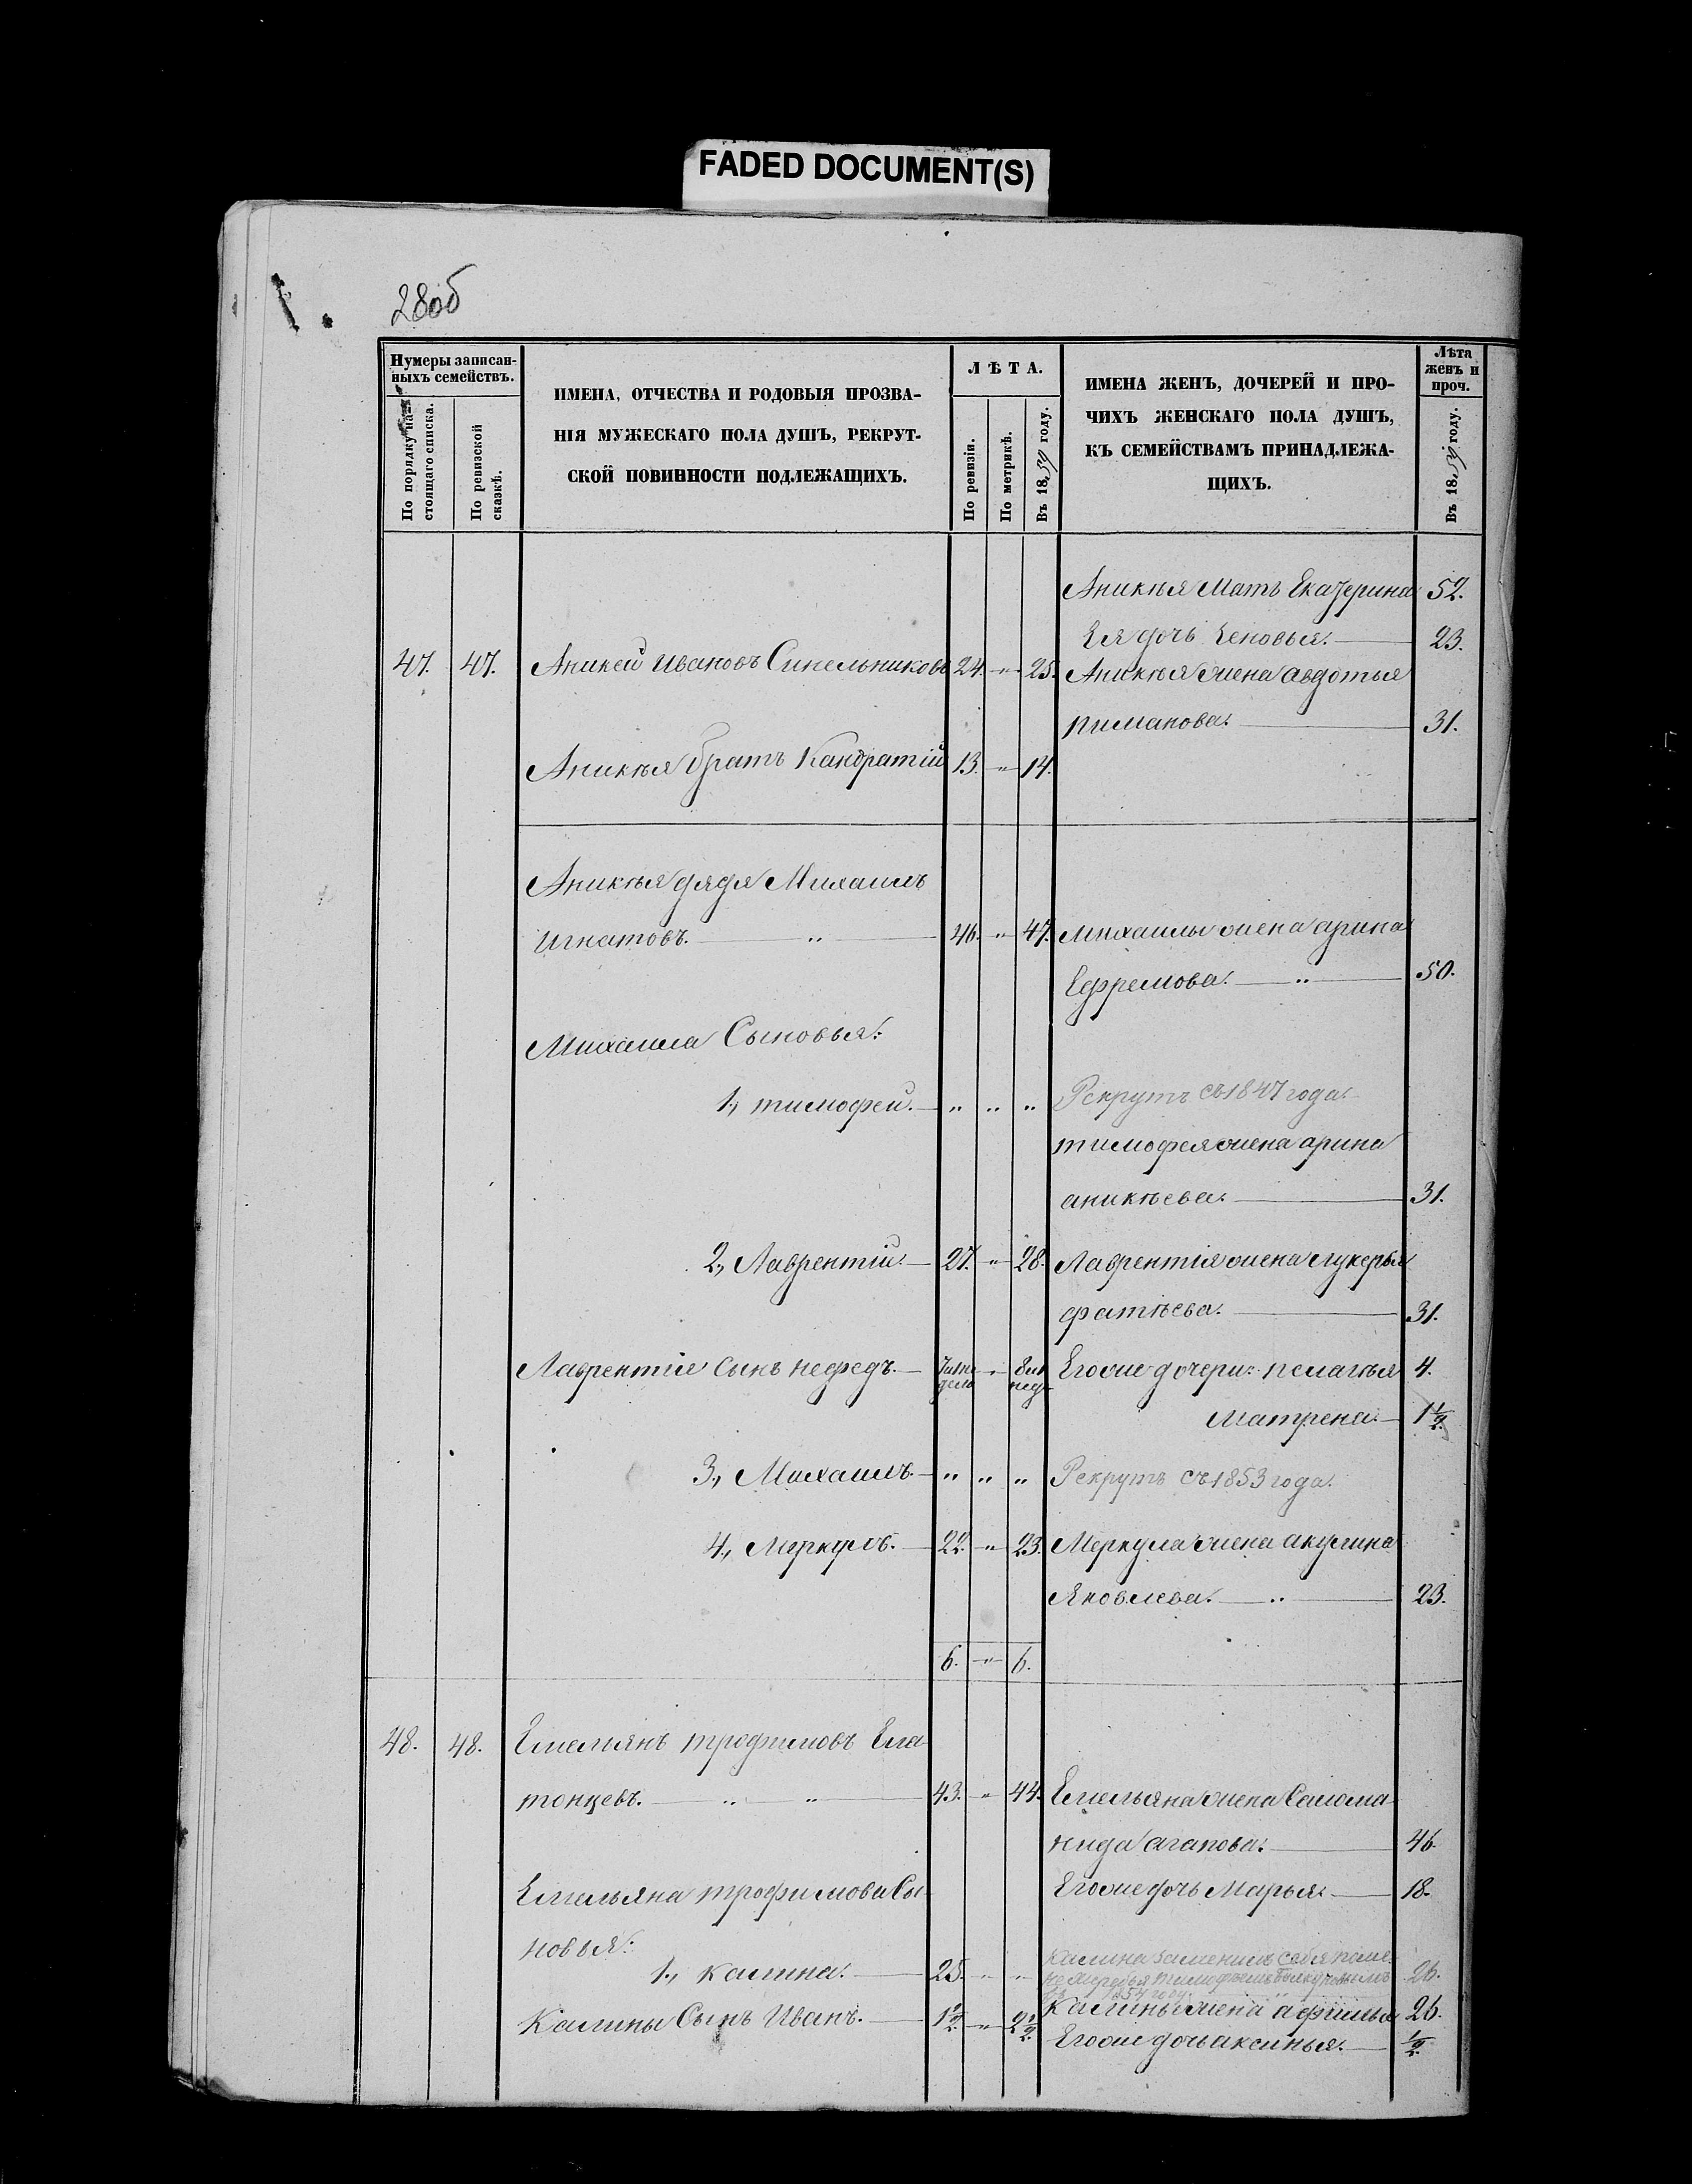 FADED DOCUMENT(S)
28об
Нумеры записан-
ныхъ семействъ.
По порядку на-
стоящаго списка.
По ревизской
сказкѣ.
ИМЕНА, ОТЧЕСТВА И РОДОВЫЯ ПРОЗВА-
НІЯ МУЖЕСКАГО ПОЛА ДУШЪ, РЕКРУТ-
СКОЙ ПОВИННОСТИ ПОДЛЕЖАЩИХЪ.
ЛѢТА.
По ревизіи.
По метрикѣ.
Въ 18 59 году.
ИМЕНА ЖЕНЪ, ДОЧЕРЕЙ И ПРО-
ЧИХЪ ЖЕНСКАГО ПОЛА ДУШЪ,
КЪ СЕМЕЙСТВАМЪ ПРИНАДЛЕЖА-
ЩИХЪ.
Лѣта
женъ и
проч.
Въ 18 59 году.
Аникѣя Мать Екатерина 52.
Ея дочь Зеновья. 23.
47. 47. Аникей Ивановъ Синельниковъ 24. " 25. Аникѣя жена Авдотья
пиманова. 31.
Аникѣя братъ Кандратій 13. " 14.
Аникѣя дядя Михаилъ
Игнатовъ. " 46. " 47. Михаилы жена арина
Ефремова. " 50.
Михаила Сыновья:
1., тимофей. " " " Рекрутъ съ 1847 года.
тимофея жена арина
аникѣева. 31.
2., Лаврентій. 27. " 28. Лаврентія жена глукерья
фатѣева. 31.
Лаврентія сынъ нефедъ. " Егоже дочери: пелагѣя 4.
Матрена. 1½
3., Михаилъ. " " " Рекрутъ съ 1853 года.
4., Меркулъ. 22. " 23. Меркула жена акулина
Яковлева. " 23.
6. " 6.
48. 48. Емельянъ трофимовъ Ела
тонцевъ. " " 43. " 44. Емельяна жена Салома
нида агапова. 46.
Емельяна трофимова Сы
новья:
Егоже дочь Марья. 18.
1., калина. 25. " " калина заменилъ себя
26.
Калины Сынъ Иванъ. 1½ " 2½ Калины жена афимья 26.
Егоже дочь аксинья. ½